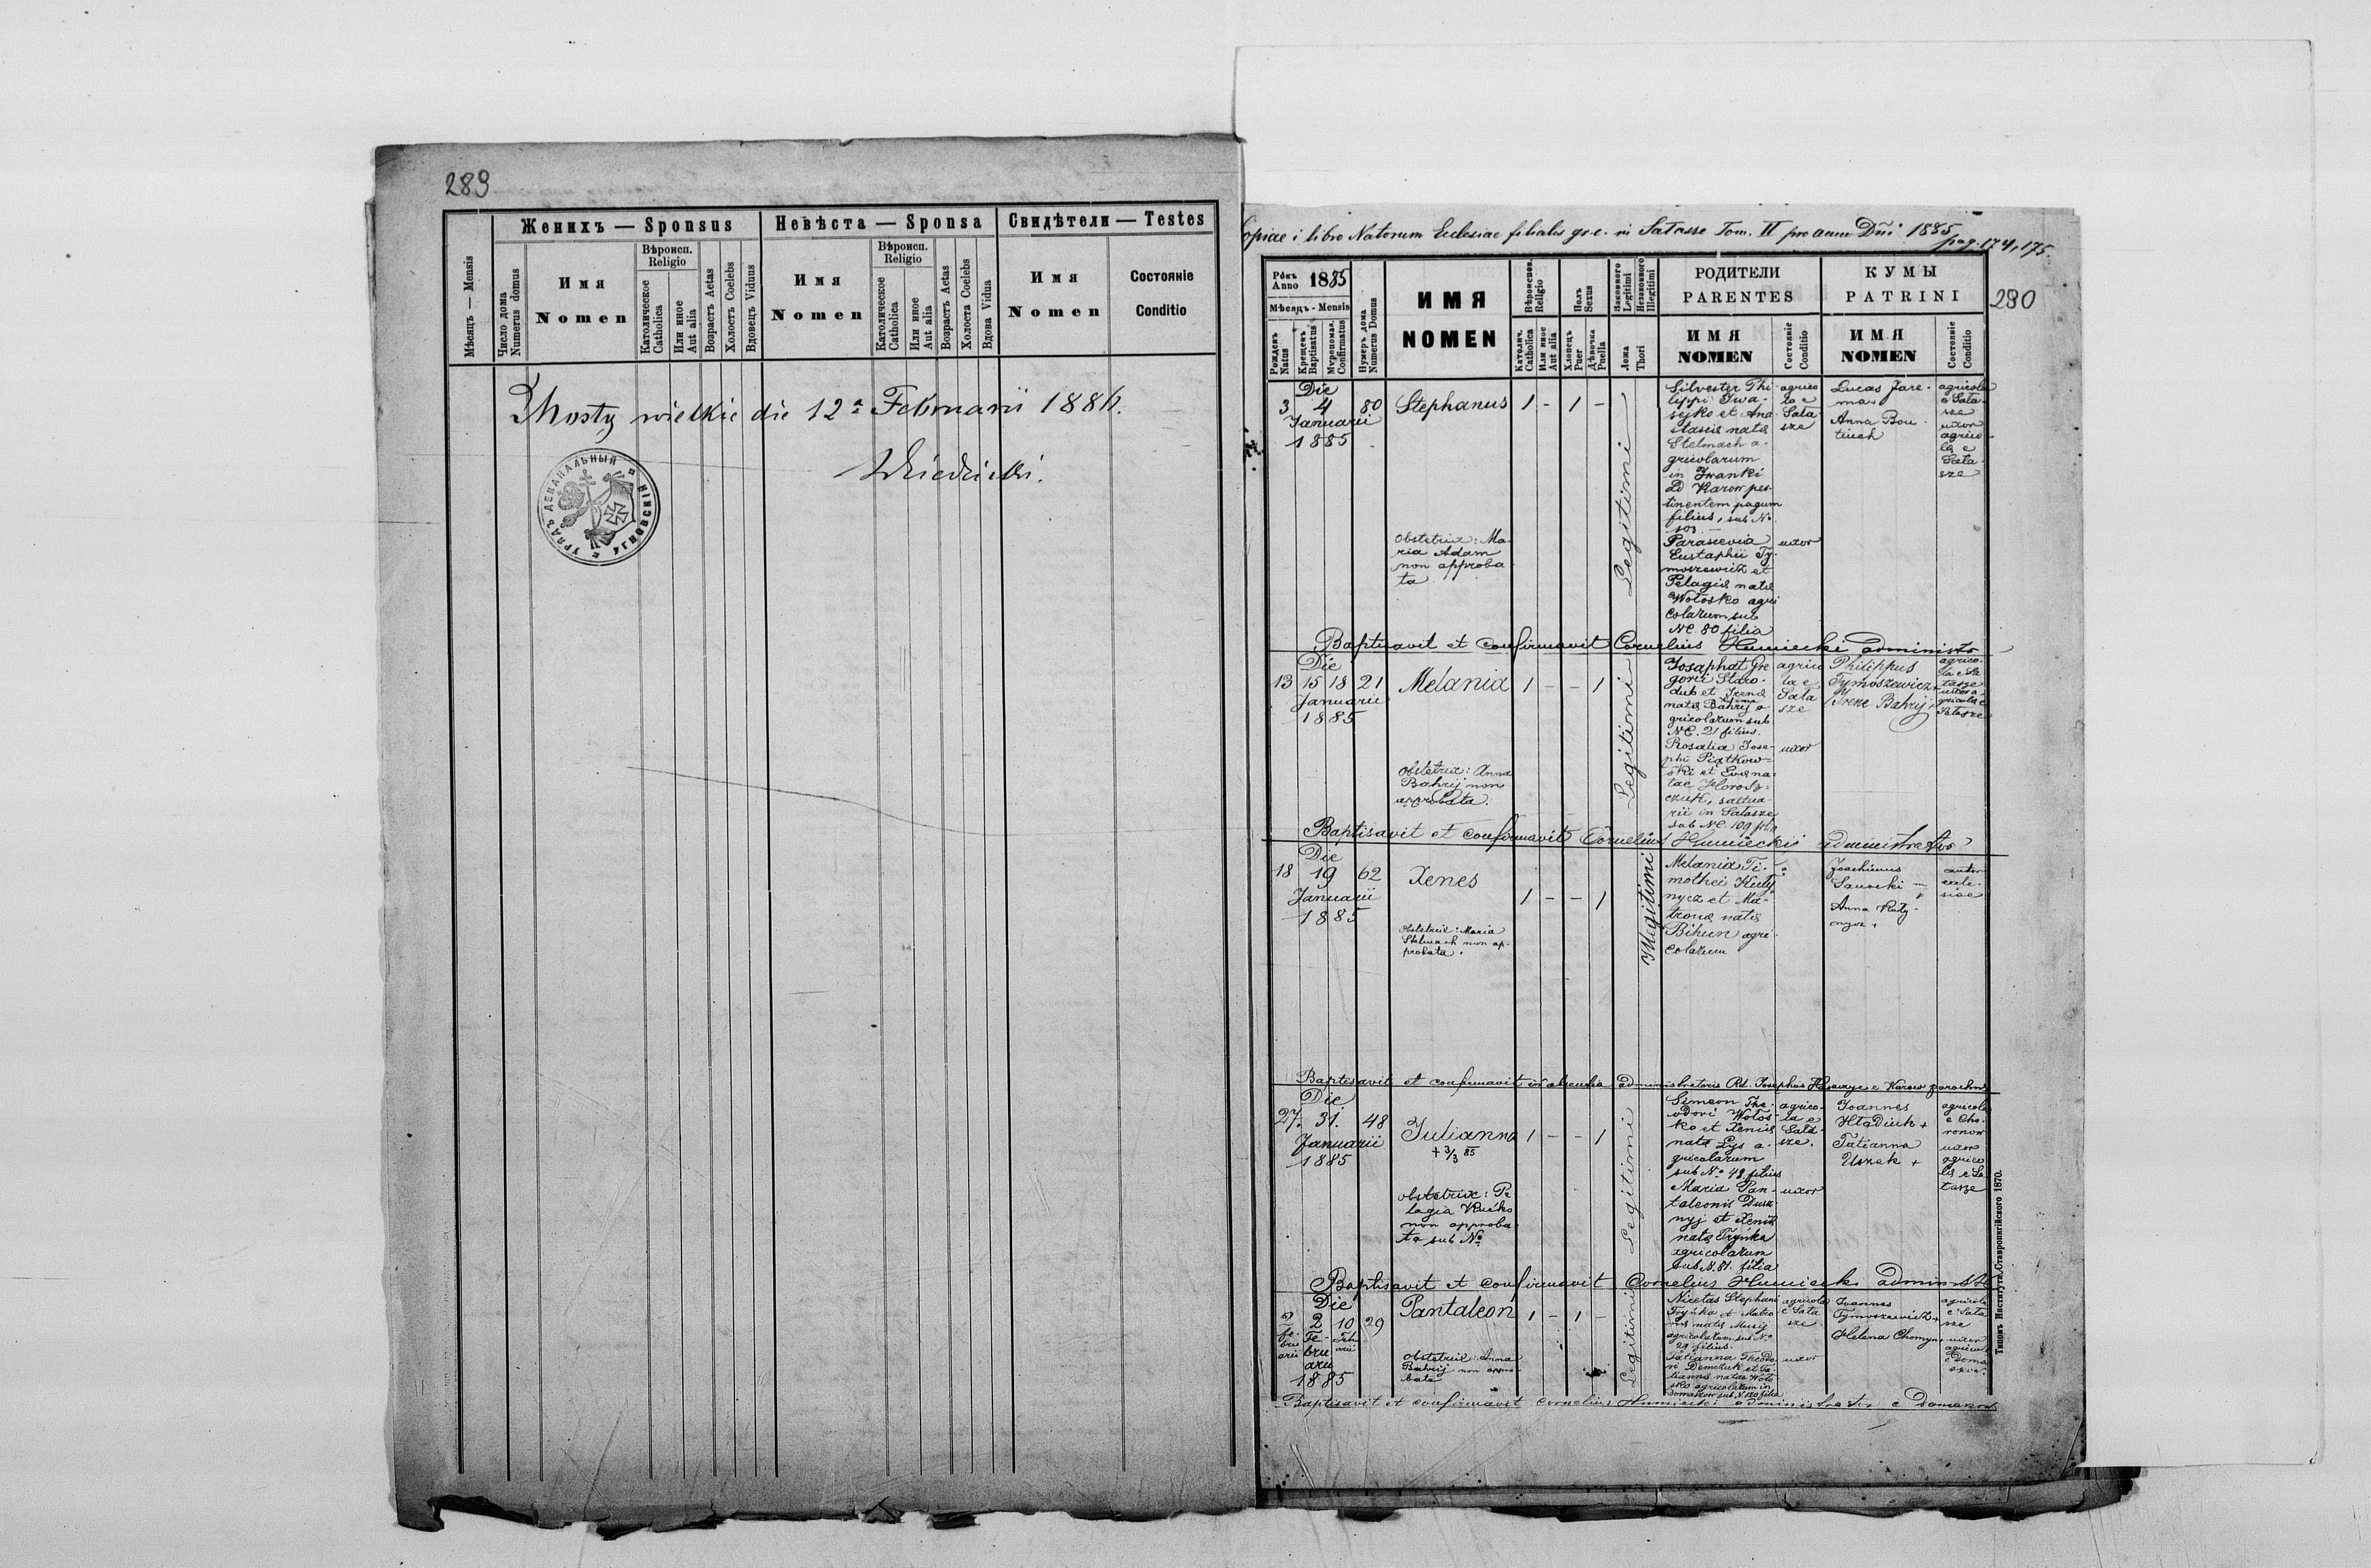 289
Женихъ — Sponsus
Невѣста — Sponsa
Свидѣтели — Testes
Мѣсяцъ — Mensis
Число дома
Numerus domus
Имя
Nomen
Вѣроисп.
Religio
Католическое
Catholica
Или иное
Aut alia
Возрастъ Aetas
Холостъ Coelebs
Вдовецъ Viduus
Имя
Nomen
Вѣроисп.
Religio
Католическое
Catholica
Или иное
Aut alia
Возрастъ Aetas
Холоста Coelebs
Вдова Vidua
Имя
Nomen
Состояніе
Conditio
Mosty wielkie die 12a Februarii 1886.
УРЯДЪ ДЕКАНАЛЬНЫЙ УГНОВСКІЙ
Copiae i libro Natorum Ecclesiae filialis gr. c. in Satasze Tom. II pro anno Dni 1885
pag. 174, 175.
280
Рôкъ
Anno 1885
Мѣсяцъ - Mensis
Рожденъ
Natus
Крещенъ
Baptisatus
Мѵропомаз.
Confirmatus
Нумеръ дома
Numerus Domus
ИМЯ
NOMEN
Вѣроиспов.
Religio
Католич.
Catholica
Или иное
Aut alia
Полъ
Sexus
Хлопецъ
Puer
Дѣвочка
Puella
Законного
Legitimi
Незаконного
Illegitimi
Ложа
Thori
РОДИТЕЛИ
PARENTES
ИМЯ
NOMEN
Состояніе
Conditio
КУМЫ
PATRINI
ИМЯ
NOMEN
Состояніе
Conditio
Die
3 4 80 Stephanus 1 - 1 -
Januarii
1885
Legitimi
obstetrix: Ma-
ria Adam
non approba-
ta
Silvester Phi-
lippi Iwa-
sejko et Ana-
stasiæ natæ
Stelmach a-
gricolarum
in Iwanki
ad Karow per-
tinentem pagum
filius, sub No
103.
Parascevia
Eustaphii Ty-
moszewicz et
Pelagiæ natæ
Wołosko agri
colarum sub
NC. 80 filia
agrico
la e
Sata-
sze
uxor
Lucas Jare-
ma +
Anna Bou-
tiuch
agricola
e Sata-
sze
uxor
agrico-
læ e
Sata-
sze
Baptisavit et confirmavit Cornelius Humiecki administr
Die
13 15 18 21 Melania 1 - - 1
Januarii
1885
Legitimi
obstetrix: Anna
Bahrij non
approbata.
Josaphat Gre
gorii Staro-
dub et Irenæ
natæ Bahrij a-
gricolarum sub
NC. 21 filius.
Rosalia Jose-
phi Piątkow-
ski et Evæ na-
tae Horody-
czuk, saltua-
rii in Satasze
sub NC 109 filia
agrico
la e
Sata
sze
uxor
Philippus
Tymoszewicz +
Irene Bahrij +
agrico-
la e Sa
tasze
uxor a-
gricolæ e
Satasze
Baptisavit et confirmavit Cornelius Humiecki administrator
Die
18 19 62 Xenes
Januarii 1 - - 1
1885
Illegitimi
obstetrix: Maria
Stelmach non ap-
probata.
Melania Ti-
mothei Kuty
nycz et Ma-
tronæ natæ
Bihun agri-
colarum
Joachimus
Sanocki
Anna Kuty-
nycz +
cantor
eccle-
siae
Baptisavit et confirmavit in absentia administratoris Rd. Josephus e Karow parochus
Die
27. 31. 48 Julianna 1 - - 1
+ 3/3 85
Januarii
1885
Legitimi
obstetrix: Pe
lagia Kućko
non approba-
ta sub No
Simeon The-
odori Wołos-
ko et Xeniæ
natæ Łys a-
gricolarum
sub No 48 filius
Maria Pan-
taleonis Dusz-
nyj et Xeniæ
natæ Trynka
agricolarum
sub N. 81. filia
agrico-
la e
Sata-
sze.
uxor
Joannes
Hładiuk +
Tatianna
Uszak +
agricola
e Cho-
ronow
uxor
agrico
læ e Sa
tasze
Baptisavit et confirmavit Cornelius Humiecki administr
Die
2 2 10 29 Pantaleon 1 - 1 -
fe- Fe- Feb
bru bru ru
arii arii arii
1885
Legitimi
obstetrix: Anna
Bahrij non appro-
bata
Nicetas Stephani
Trynka et Matro
næ natæ Musij
agricolarum sub No
29 filius.
Tatianna Theodo-
ri Demczuk et Ta-
tiannæ natae Woło-
sko agricolarum in
Domaszow sub N. 120 filia
agricola
e Sata
sze
uxor
Joannes
Tymoszewicz +
Helena Chomyn +
agricola
e Sata
sze
uxor
agricolæ
e Doma
szow.
Baptisavit et confirmavit Cornelius Humiecki administrator e Domaszow
Типомъ Института Ставропигійского 1870.